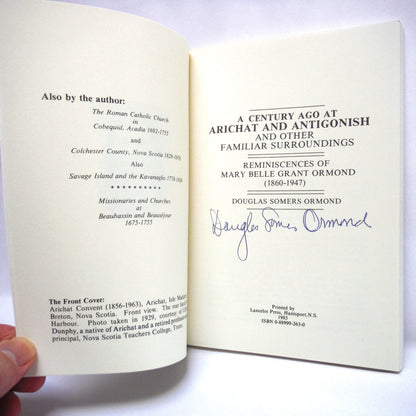 Also by the author:
The Roman Catholic Church
in
Cobequid, Acadia 1692-1755
and
Colchester County, Nova Scotia 1828-1978
Also
Savage Island and the Kavanaghs 1776-1858
**********
Missionaries and Churches
at
Beaubassin and Beauséjour
1675-1755
The Front Cover:
Arichat Convent (1856-1963), Arichat, Isle Madame
Breton, Nova Scotia. Front view. The rear faced
Harbour. Photo taken in 1929, courtesy of
Dunphy, a native of Arichat and a retired
principal, Nova Scotia Teachers College, Truro
A CENTURY AGO AT
ARICHAT AND ANTIGONISH
AND OTHER
FAMILIAR SURROUNDINGS
REMINISCENCES OF
MARY BELLE GRANT ORMOND
(1860-1947)
DOUGLAS SOMERS ORMOND
Douglas Somers Ormond
Printed by
Lancelot Press, Hantsport, N.S.
1985
ISBN 0-88999-263-0